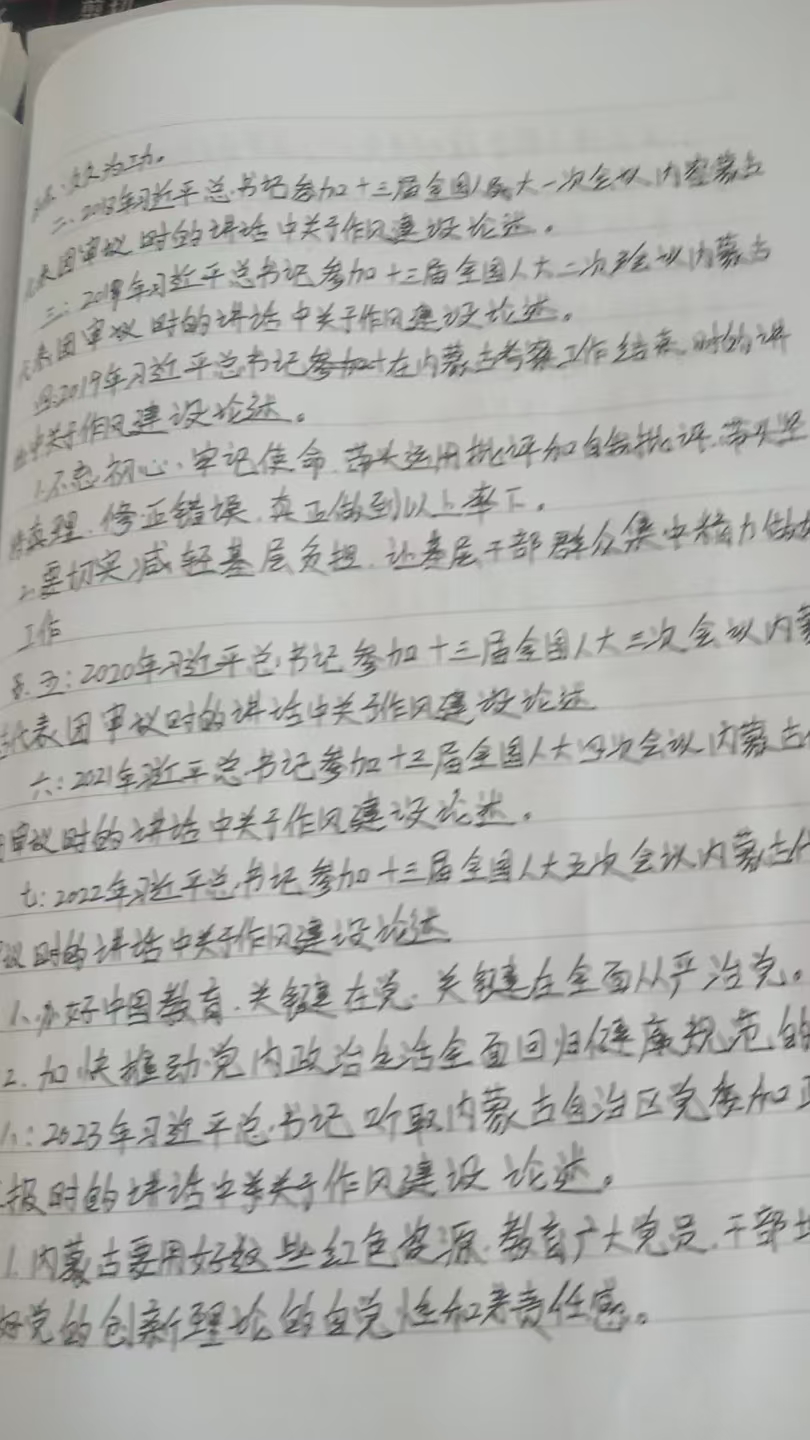 久久为功。
二、2018年习近平总书记参加十三届全国人大一次会议内蒙古
代表团审议时的讲话中关于作风建设论述。
三：2019年习近平总书记参加十三届全国人大二次会议内蒙古
代表团审议时的讲话中关于作风建设论述。
四2019年习近平总书记在内蒙古考察工作结束时的讲
话中关于作风建设论述。
1.不忘初心、牢记使命 带头运用批评和自我批评、带头坚
持真理、修正错误、真正做到以上率下。
2.要切实减轻基层负担、让基层干部群众集中精力做好
工作
五：2020年习近平总书记参加十三届全国人大三次会议内蒙
古代表团审议时的讲话中关于作风建设论述
六：2021年习近平总书记参加十三届全国人大四次会议内蒙古
审议时的讲话中关于作风建设论述。
七：2022年习近平总书记参加十三届全国人大五次会议内蒙古代
议时的讲话中关于作风建设论述
1、办好中国教育、关键在党、关键在全面从严治党。
2.加快推动党内政治生活全面回归健康规范的
八：2023年习近平总书记听取内蒙古自治区党委和
报时的讲话中关于作风建设论述。
1.内蒙古要用好这些红色资源、教育广大党员、干部
好党的创新理论的自觉性和责任感。